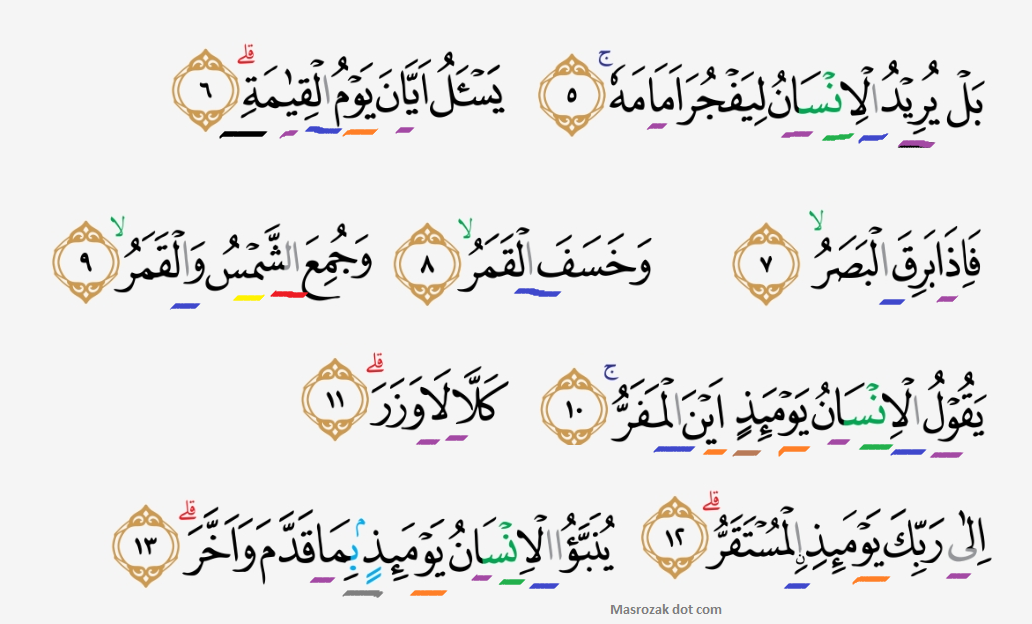 بَلْ يُرِيْدُ الْاِنْسَانُ لِيَفْجُرَ اَمَامَهٗ ۚ ٥ يَسْـَٔلُ اَيَّانَ يَوْمُ الْقِيٰمَةِ ۗ ٦
فَاِذَا بَرِقَ الْبَصَرُ ۙ ٧ وَخَسَفَ الْقَمَرُ ۙ ٨ وَجُمِعَ الشَّمْسُ وَالْقَمَرُ ۙ ٩
يَقُوْلُ الْاِنْسَانُ يَوْمَىِٕذٍ اَيْنَ الْمَفَرُّ ۚ ١٠ كَلَّا لَا وَزَرَ ۗ ١١
اِلٰى رَبِّكَ يَوْمَىِٕذِ ِۨالْمُسْتَقَرُّ ۗ ١٢ يُنَبَّؤُا الْاِنْسَانُ يَوْمَىِٕذٍ ۢ بِمَا قَدَّمَ وَاَخَّرَ ۗ ١٣
Masrozak dot com